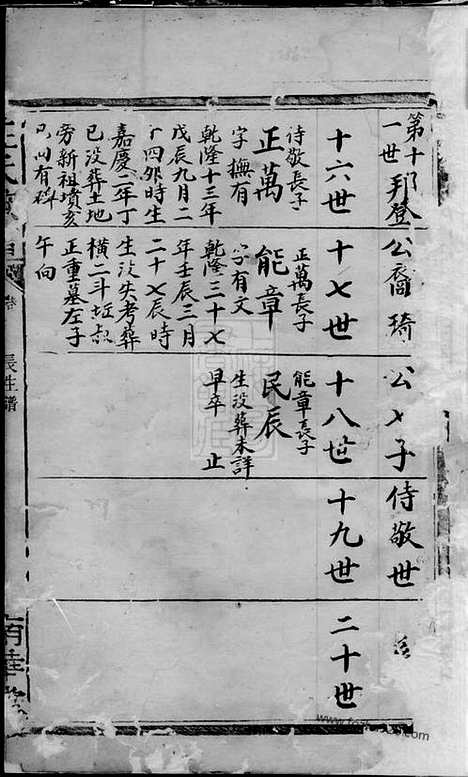 第十一世邦登公裔琦公七子侍敬世
十六世
侍敬長子
正萬
字撫有
乾隆十三年
戊辰九月二
十四卯時生
嘉慶二年丁
巳没葬土地
旁新祖墳亥
巳向有碑
十七世
正萬長子
能章
字有文
乾隆三十七
年壬辰三月
二十七辰時
生没失考葬
横二斗坵
正重墓左子
午向
十八世
能章長子
民辰
生没葬未詳
早卒 止
十九世
二十世
長生譜